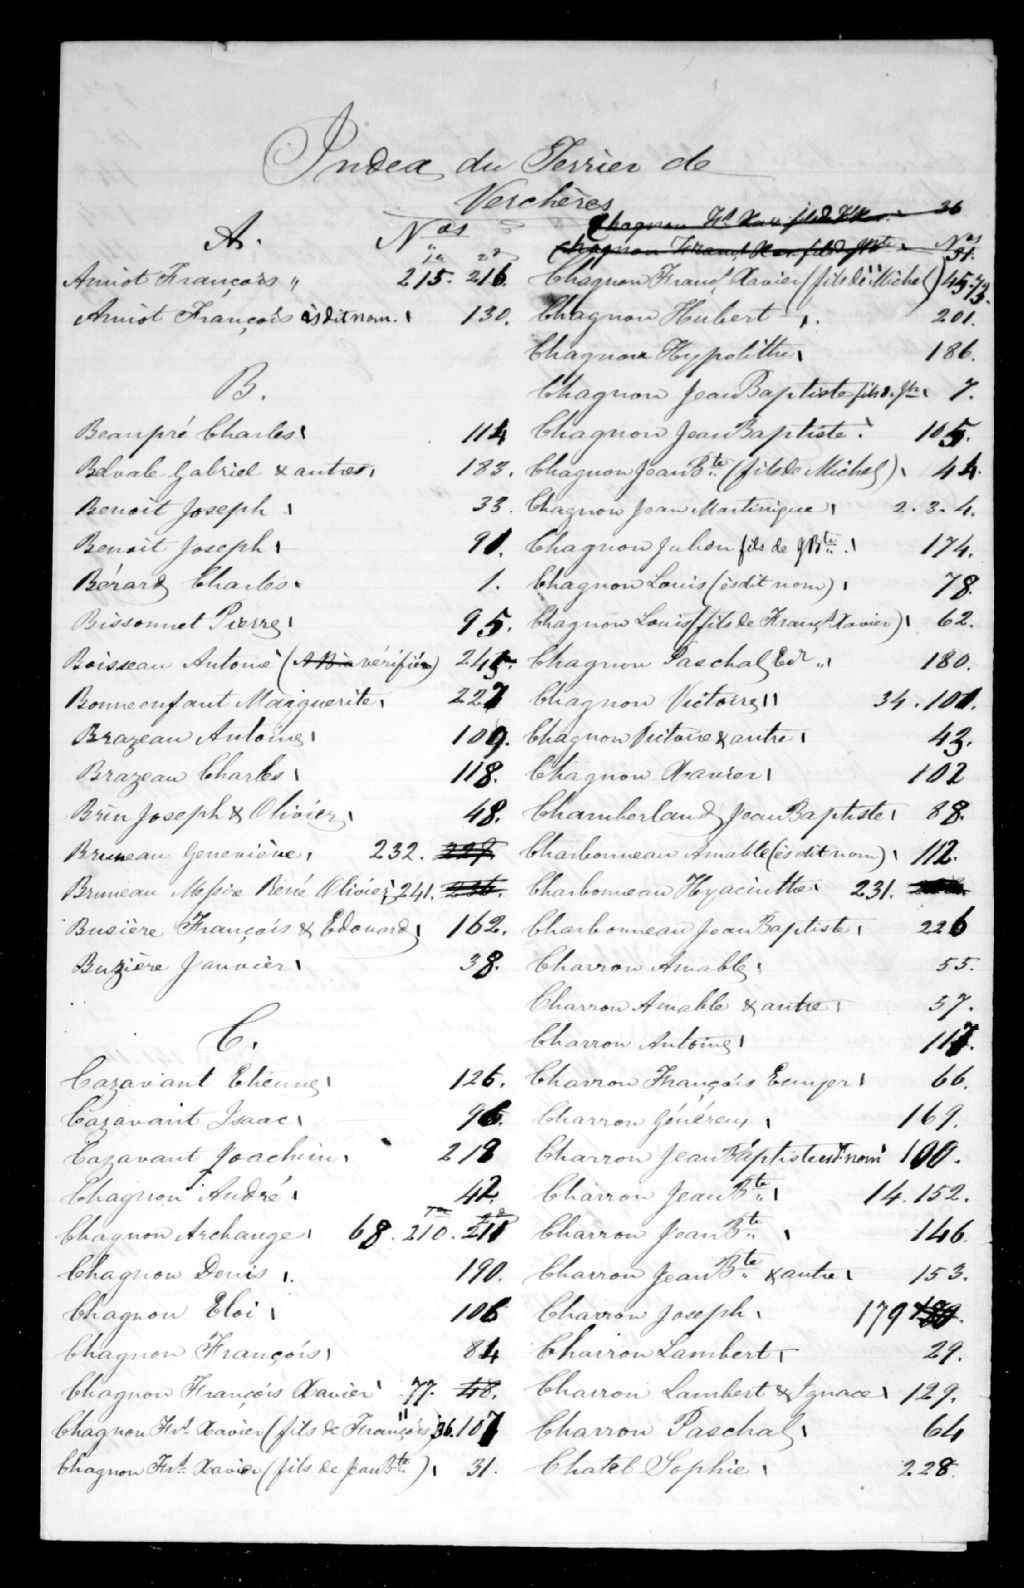 Index du Terrier de
Verchères
A.
Nos
1a 2a
Amiot François " 215. 216.
Amiot François èsdit nom. 130.
B.
Beaupré Charles 114
Belvale Gabriel & autres 183.
Benoit Joseph 33.
Benoit Joseph 91.
Bérard Charles 1.
Bissonnet Pierre 95.
Boisseau Antoine (A B à vérifier) 245.
Bonneenfant Marguerite 227
Brazeau Antoine 109.
Brazeau Charles 118.
Brin Joseph & Olivier 48.
Bruneau Geneviève 232. 227.
Bruneau Messire Renée Olivier 241. 236.
Busière François & Edouard 162.
Buzière Janvier 38.
C.
Cazavant Etienne 126.
Cazavant Isaac 96.
Cazavant Joachim 218
Chagnon André 42.
Chagnon Archange 68. 210. 211
Chagnon Denis 190.
Chagnon Eloi 106
Chagnon François 84
Chagnon François Xavier 77. 48.
Chagnon Frs. Xavier (fils de François) 36. 107
Chagnon Frs. Xavier (fils de Jean Bte) 31.
Chagnon Frs Xav. fils d 36
Chagnon Franç. Xav. fils d. Jn Bte Nos 31.
Chagnon Franç. Xavier (fils de Michel) 45. 73.
Chagnon Hubert 201.
Chagnon Hypolithe 186.
Chagnon Jean Baptiste fils d. Jn 7.
Chagnon Jean Baptiste 105.
Chagnon Jean Bte (fils de Michel) 44.
Chagnon Jean Martinique 2. 3. 4.
Chagnon Julien fils de J Bte 174.
Chagnon Louis (èsdit nom) 78.
Chagnon Louis (fils de Franç. Xavier) 62.
Chagnon Paschal Ecr 180.
Chagnon Victoire 34. 101.
Chagnon Victoire & autre 43.
Chagnon Xavier 102
Chamberland Jean Baptiste 88.
Charbonneau Amable (èsdit nom) 112.
Charbonneau Hyacinthe 231.
Charbonneau Jean Baptiste 226
Charron Amable 55.
Charron Amable & autre 57.
Charron Antoine 117.
Charron François Ecuyer 66.
Charron Généreux 169.
Charron Jean Baptiste èsdit nom 100.
Charron Jean Bte 14. 152.
Charron Jean Bte 146
Charron Jean Bte & autre 153.
Charron Joseph 179 180.
Charron Lambert 29.
Charron Lambert & Ignace 129.
Charron Paschal 64
Chatel Sophie 228.